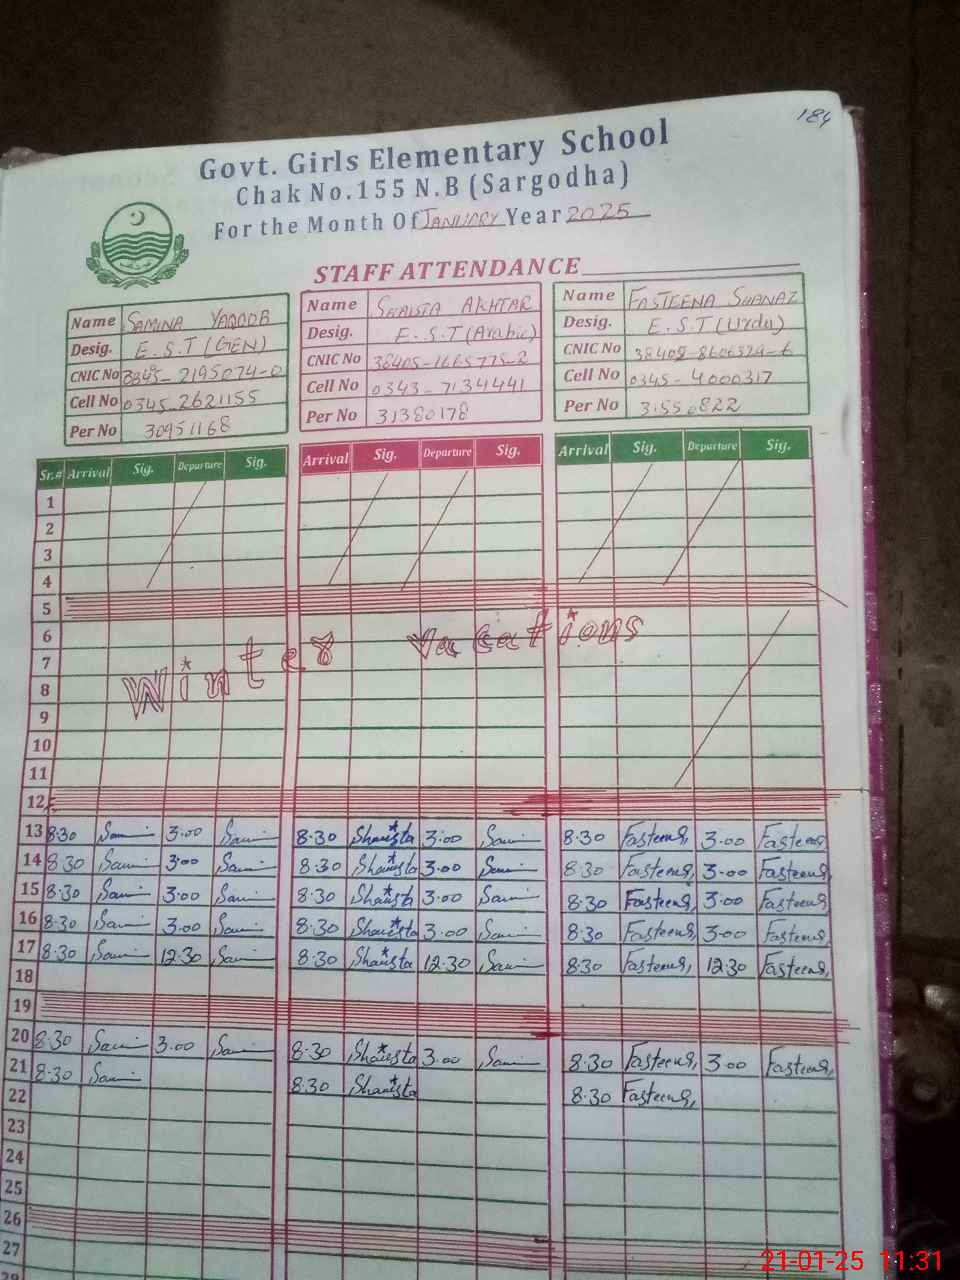 184
Govt. Girls Elementary School
Chak No.155 N.B (Sargodha)
For the Month Of JANUARY Year 2025
STAFF ATTENDANCE
Name SAMINA YAQOOB
Desig. E.S.T (GEN)
CNIC No
Cell No 0345-2621155
Per No 30951168
Name SHAISTA AKHTAR
Desig. E.S.T (Arabic)
CNIC No 38405-1665775-2
Cell No 0343-7134441
Per No 31380178
Name FASTEENA SHANAZ
Desig. E.S.T (Urdu)
CNIC No
Cell No 0345-4000317
Per No
Sr.# Arrival Sig. Departure Sig. Arrival Sig. Departure Sig. Arrival Sig. Departure Sig.
1
2
3
4
5
6
7
8
9
10
11
Winter Vacations
12
13 8:30 Sami 3:00 Sami 8:30 Shaista 3:00 Sami 8:30 Fasteena 3:00 Fasteena
14 8:30 Sami 3:00 Sami 8:30 Shaista 3:00 Sami 8:30 Fasteena 3:00 Fasteena
15 8:30 Sami 3:00 Sami 8:30 Shaista 3:00 Sami 8:30 Fasteena 3:00 Fasteena
16 8:30 Sami 3:00 Sami 8:30 Shaista 3:00 Sami 8:30 Fasteena 3:00 Fasteena
17 8:30 Sami 12:30 Sami 8:30 Shaista 12:30 Sami 8:30 Fasteena 12:30 Fasteena
18
19
20 8:30 Sami 3:00 Sami 8:30 Shaista 3:00 Sami 8:30 Fasteena 3:00 Fasteena
21 8:30 Sami 8:30 Shaista 8:30 Fasteena
22
23
24
25
26
27
28
21-01-25 11:31